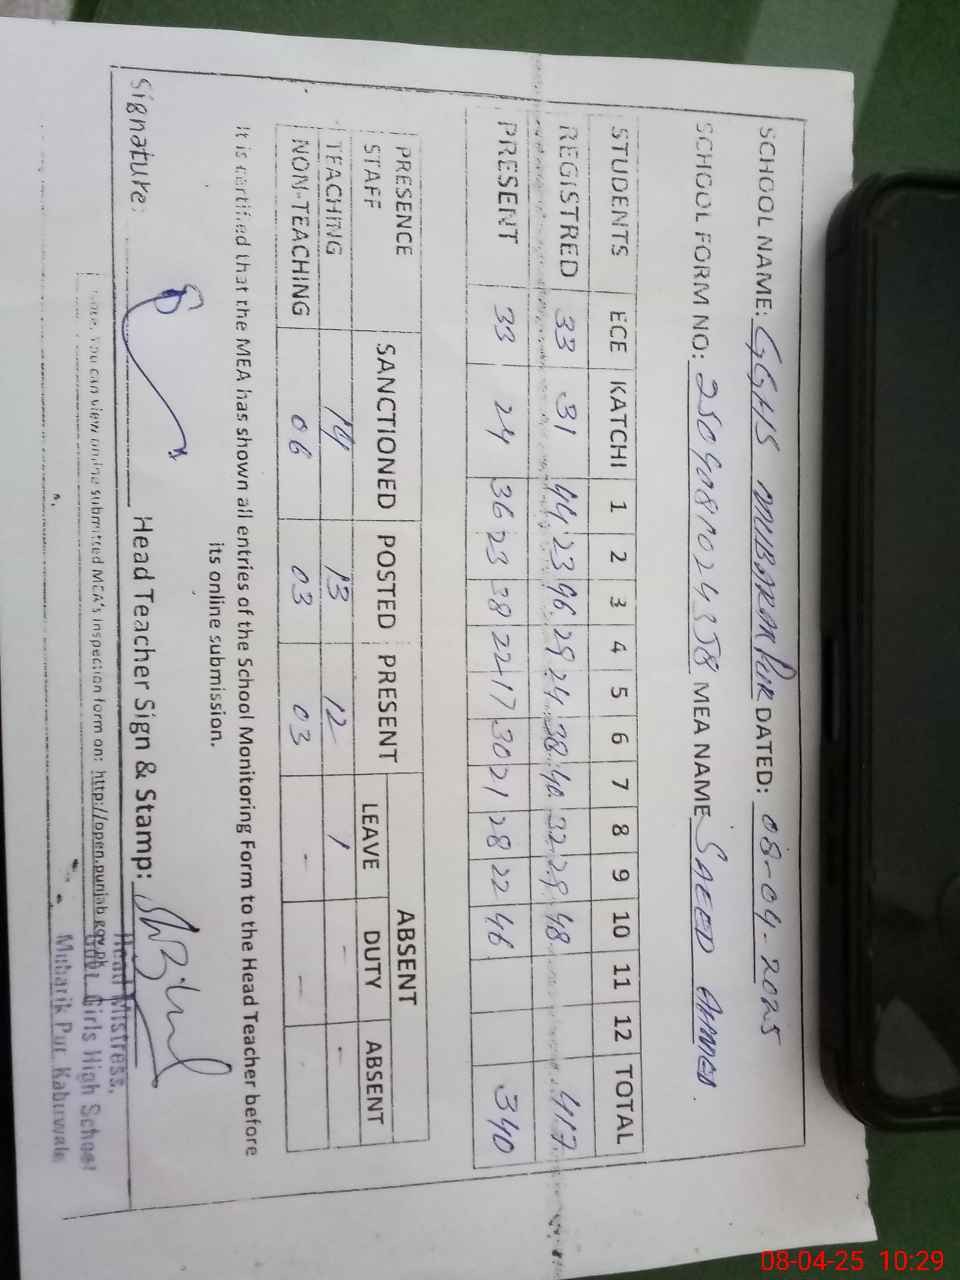 SCHOOL NAME: GGHS MUBARAK PUR DATED: 08-04-2025
SCHOOL FORM NO: MEA NAME SAEED AHMED.
STUDENTS ECE KATCHI 1 2 3 4 5 6 7 8 9 10 11 12 TOTAL
REGISTRED 33 31 44 23 46 29 24 38 40 32 29 48 417
PRESENT 33 24 36 23 38 22 17 30 21 28 22 46 340
PRESENCE STAFF SANCTIONED POSTED PRESENT ABSENT
LEAVE DUTY ABSENT
TEACHING 14 13 12 1 - -
NON-TEACHING 06 03 03 - -
It is certified that the MEA has shown all entries of the School Monitoring Form to the Head Teacher before
its online submission.
Signature: Head Teacher Sign & Stamp:
Head Mistress,
Note: You can view online submitted MEA's inspection form on: http://open.punjab.gov.pk
Govt. Girls High School
Mubarik Pur Kabirwala
08-04-25 10:29